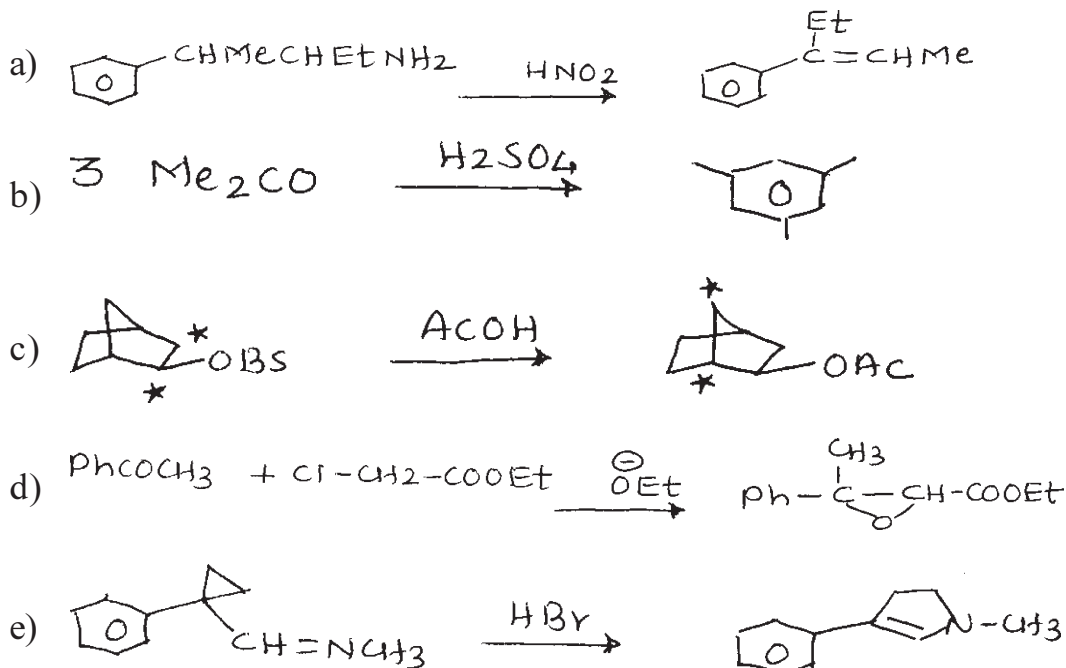 Et
a) CHMeCHEtNH2 HNO2 C=CHMe
b) 3 Me2CO H2SO4
c) * * OBS ACOH * * OAC
CH3
d) PhCOCH3 + Cl-CH2-COOEt ⊖OEt Ph-C-CH-COOEt
O
e) CH=NCH3 HBr N-CH3